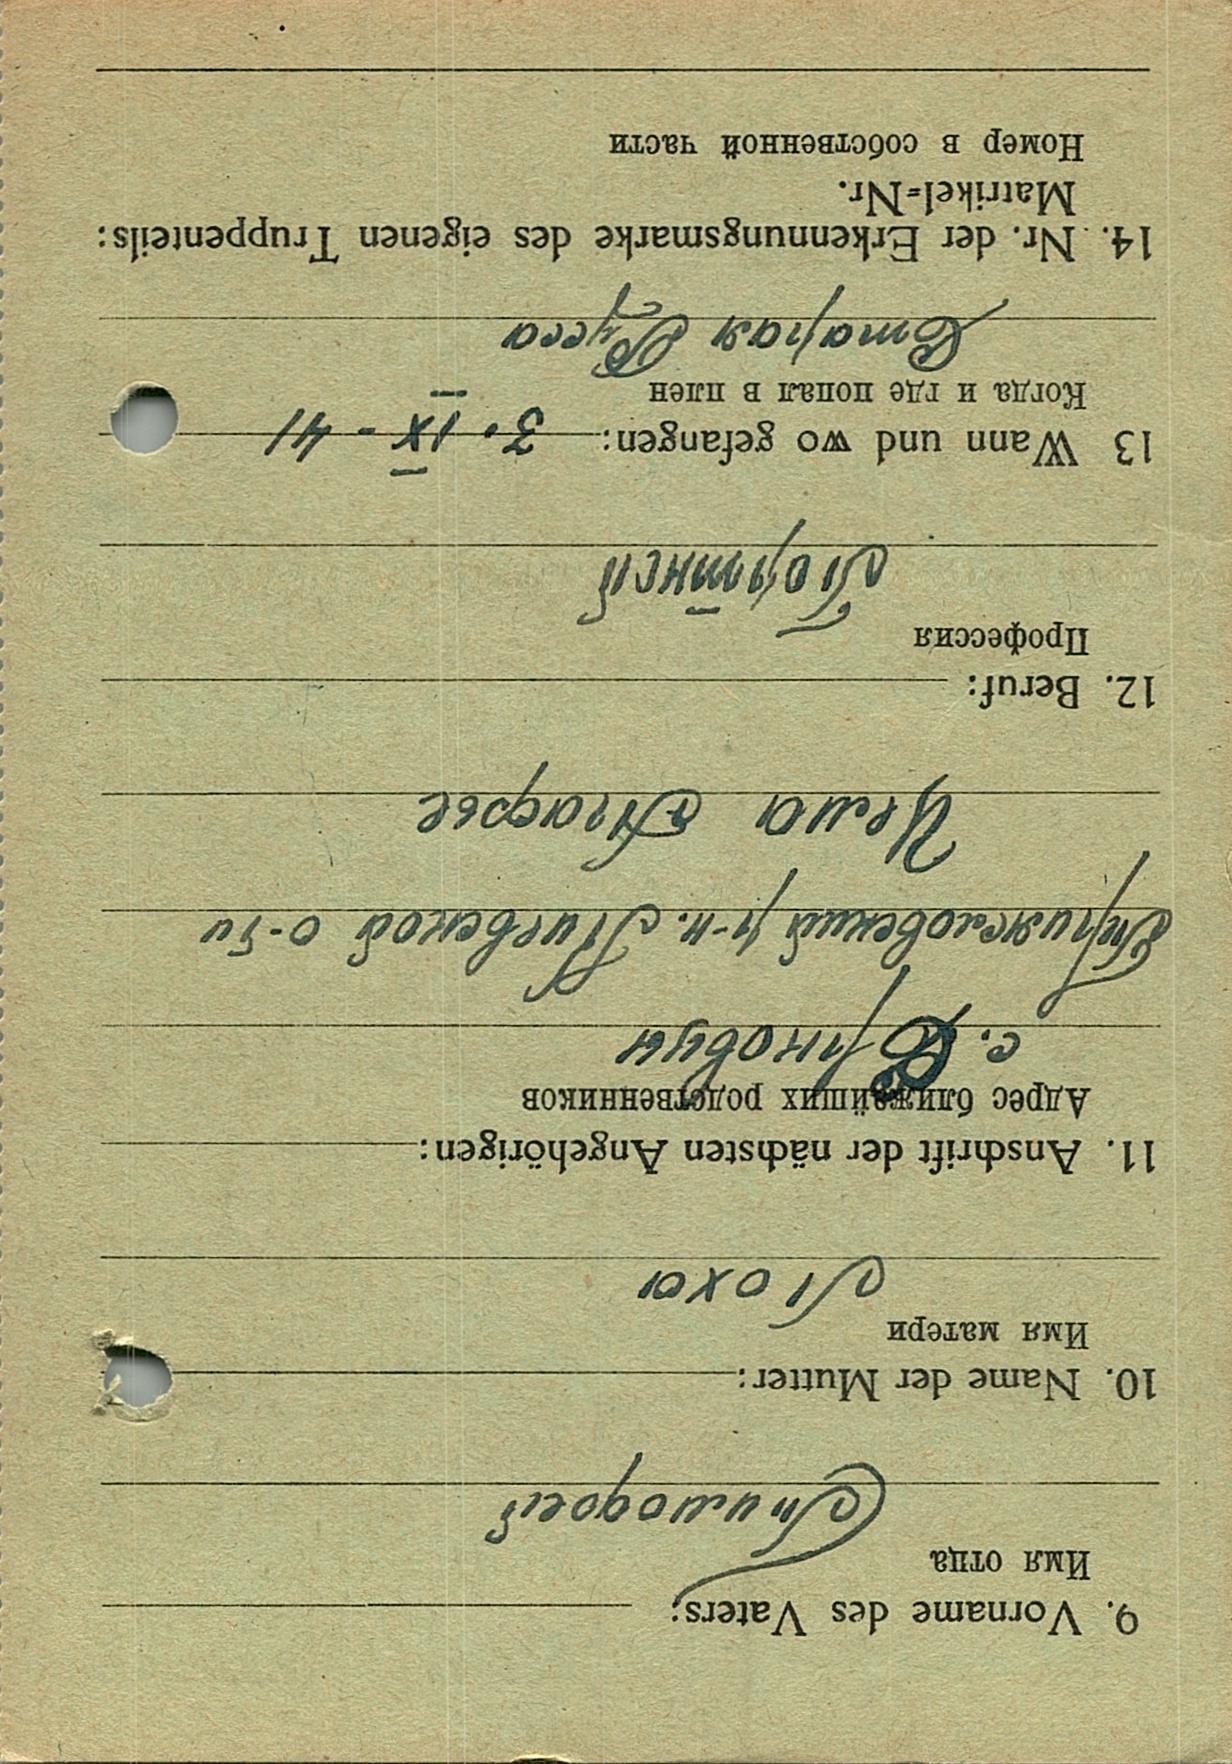 9. Vorname des Vaters:
Имя отца
Тимофей
10. Name der Mutter:
Имя матери
11. Anschrift der nächsten Angehörigen:
Адрес ближайших родственников
с.
р-н. Киевской о-ти
12. Beruf:
Профессия
Портной
13 Wann und wo gefangen: 3. IX - 41
Когда и где попал в плен
Старая Русса
14. Nr. der Erkennungsmarke des eigenen Truppenteils:
Matrikel=Nr.
Номер в собственной части